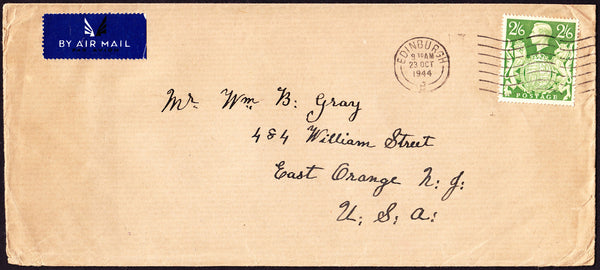 BY AIR MAIL
EDINBURGH
9 15 AM
23 OCT
1944
2/6 2/6
POSTAGE
Mr Wm B. Gray
484 William Street
East Orange N. J.
U. S. A.